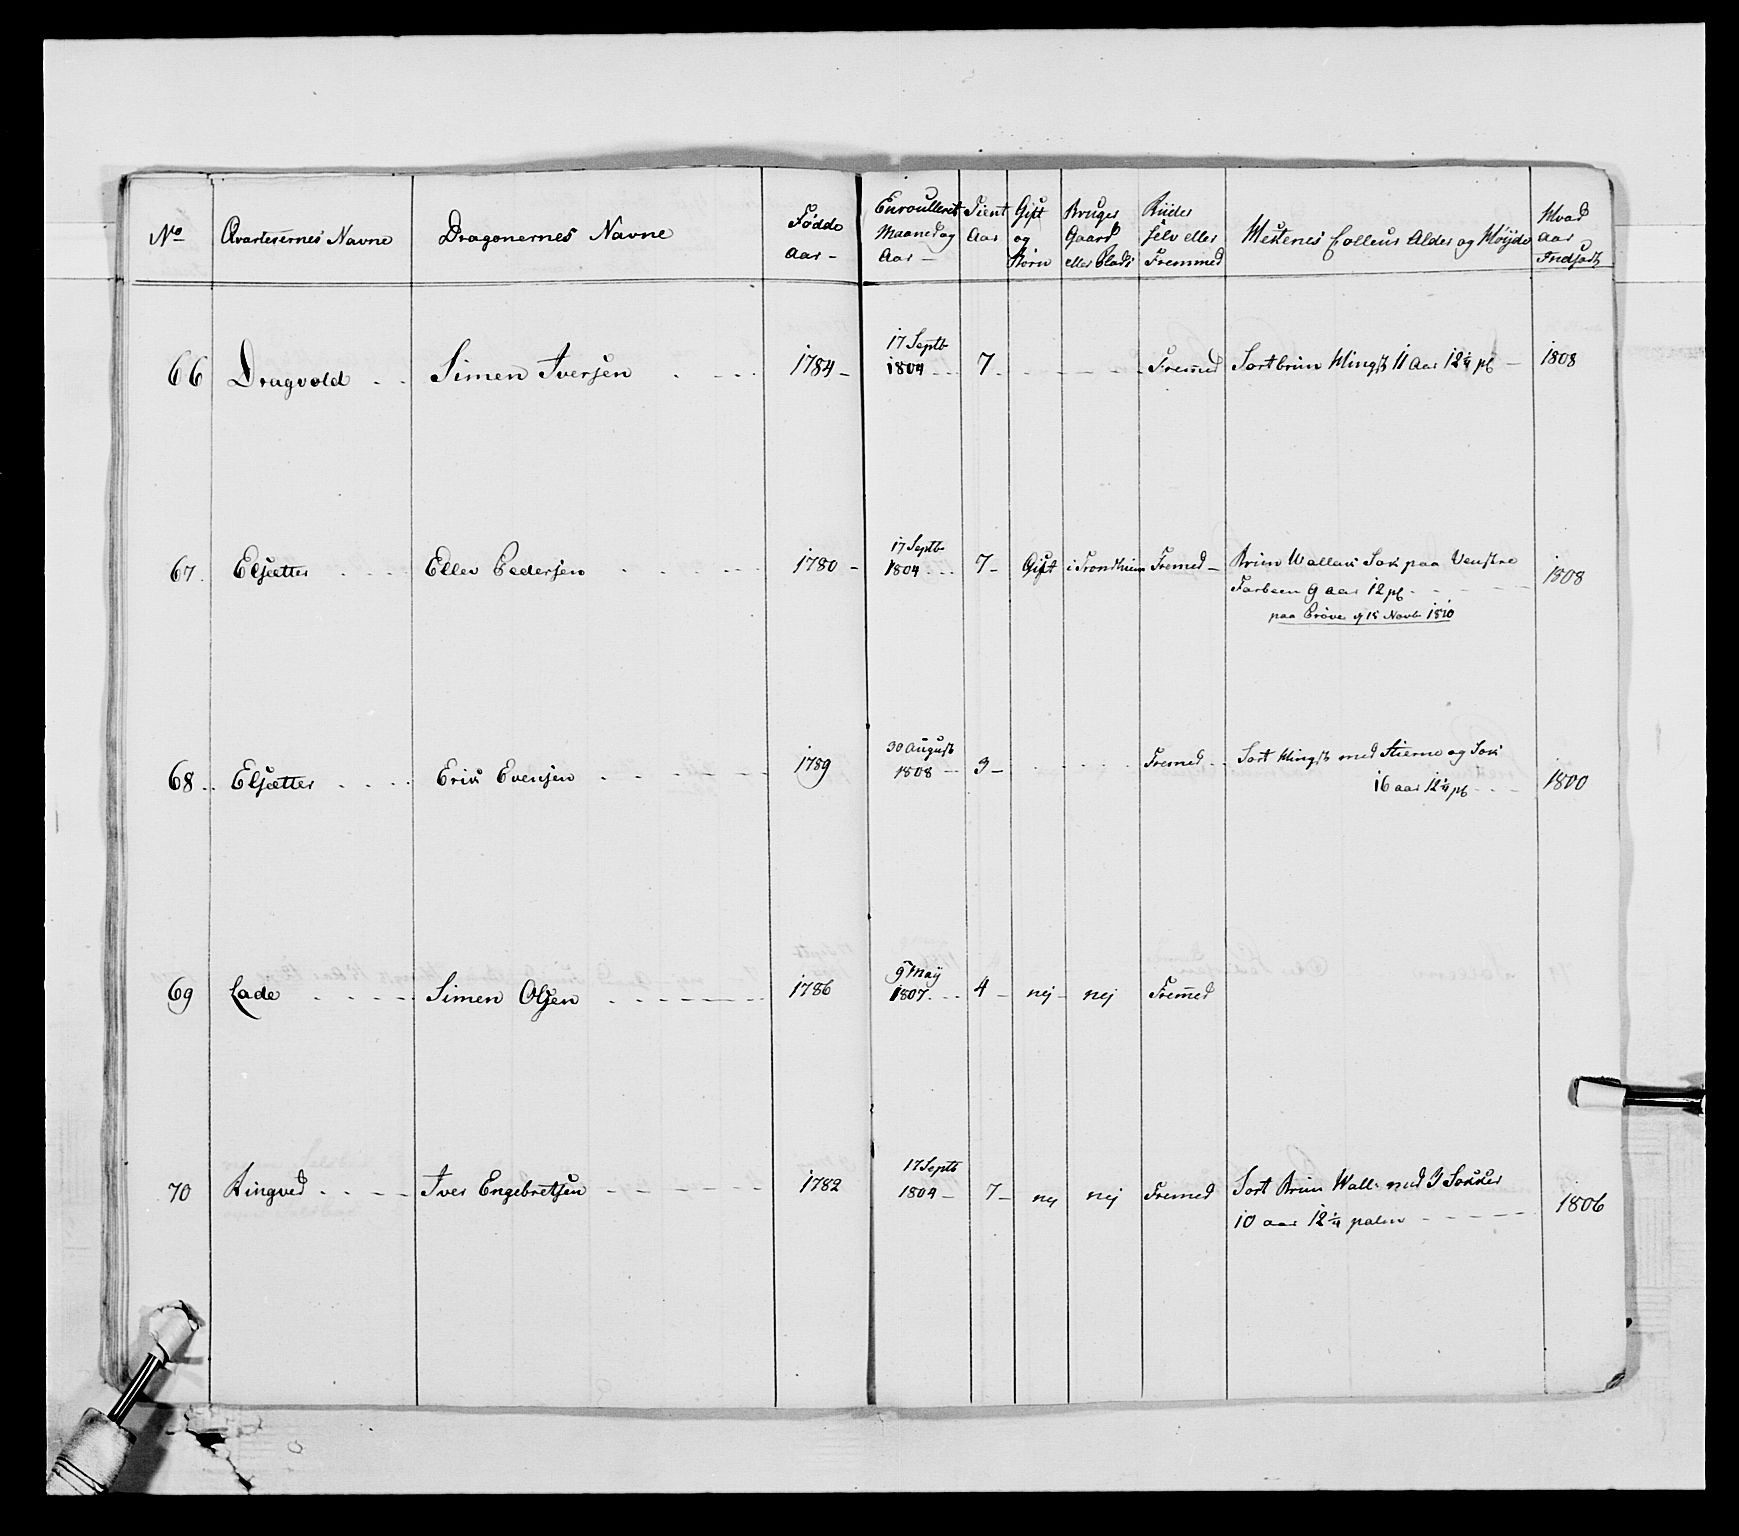 No Qvarterernes Navne Dragonernes Navne Fødde Aar - Enroulleret Maaned og Aar - Tient Aar Gift og Børn Bruger Gaard eller Plads Riider selv eller Fremmed Hestenes Colleur Alder og Høÿde Hvad Aar Indsadt
66 Dragvold Simen Iversen 1784 - 17 Septb 1804 7 - Fremed Sortbrun Hingst 11 Aar 12 1/4 pl - 1808
67. Elsætter Eller Pedersen 1780 - 17 Septb 1804 7 - Gift i Trondhiem Fremed - Brun Wallak Sok paa Venstre
Farbeen 9 aar 12 pl 1808
paa Prøve 15 Novb 1810
68 Elsætter Erik Evensen 1789 30 August 1808 3 - Fremed Sort Hingst med Stierne og Sok
16 aar 12 1/4 pl 1800
69 Lade Simen Olsen 1786 9 Maÿ 1807 4 - nej - nej Fremed
70 Ringved Iver Engebretsen 1782 17 Septb 1804 - 7 - nej nej Fremed Sort Brun Wall. med 3 Sokker
10 aar 12 1/4 palm 1806